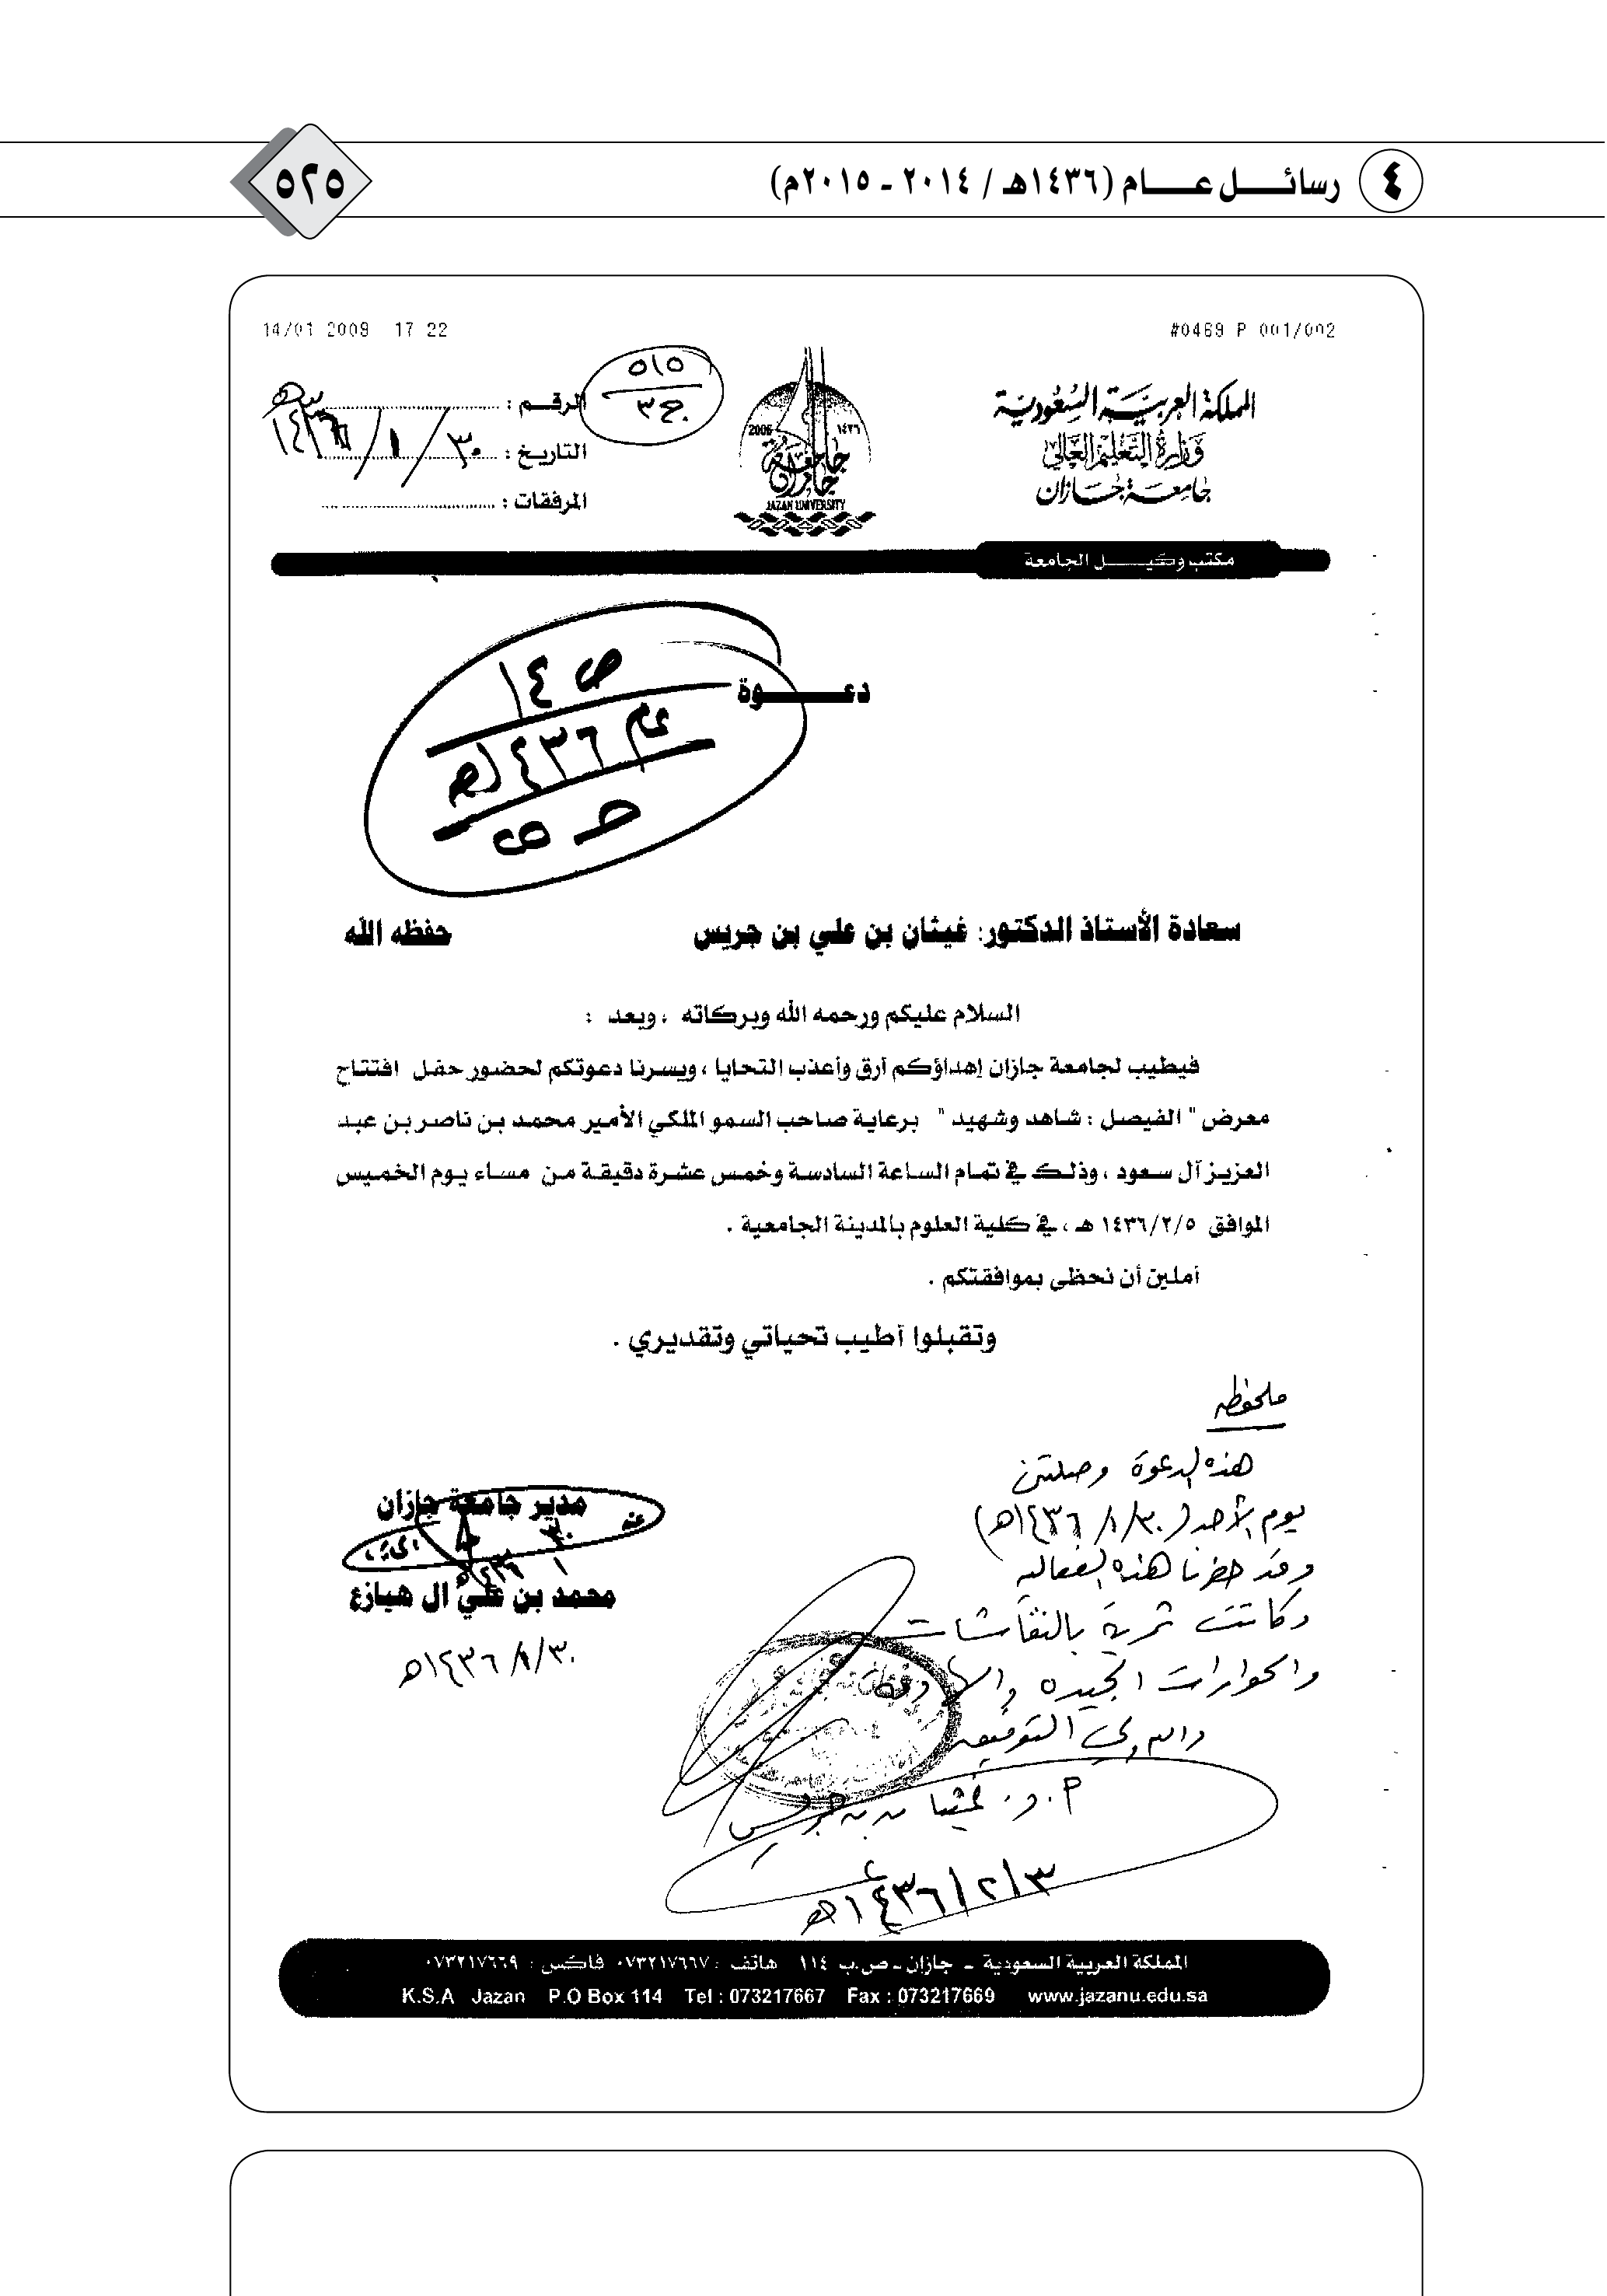 ٤ رسائل عام (١٤٣٦هـ / ٢٠١٤ - ٢٠١٥م)
٥٢٥
14/01 2009 17 22
#0469 P 001/002
المملكة العربية السعودية
وزارة التعليم العالي
جامعة جازان
2006 ١٤٢٦
جامعة جازان
JAZAN UNIVERSITY
٥١٥
ج ٣
الرقم :
التاريخ : ٣٠ / ١ / ١٤٣٦هـ
المرفقات :
مكتب وكيل الجامعة
دعوة
ص ١٤
عام ١٤٣٦هـ
سعادة الأستاذ الدكتور: غيثان بن علي بن جريس حفظه الله
السلام عليكم ورحمه الله وبركاته ، وبعد :
فيطيب لجامعة جازان إهداؤكم أرق وأعذب التحايا ، ويسرنا دعوتكم لحضور حفل افتتاح
معرض " الفيصل : شاهد وشهيد " برعاية صاحب السمو الملكي الأمير محمد بن ناصر بن عبد
العزيز آل سعود ، وذلك في تمام الساعة السادسة وخمس عشرة دقيقة من مساء يوم الخميس
الموافق ١٤٣٦/٢/٥ هـ ، في كلية العلوم بالمدينة الجامعية .
أملين أن نحظى بموافقتكم .
وتقبلوا أطيب تحياتي وتقديري .
مدير جامعة جازان
محمد بن علي آل هيازع
٣٠/١/١٤٣٦هـ
ملحوظه
هذه الدعوة وصلتني
يوم الأحد (٣٠/١/١٤٣٦هـ)
وقد حضرنا هذه الفعالية
وكانت ثرية بالنقاشات
والحوارات الجيده والهادفة
والله ولي التوفيق
أ.د. غيثان بن جريس
٣/٢/١٤٣٦هـ
المملكة العربية السعودية - جازان - ص.ب ١١٤ هاتف : ٠٧٣٢١٧٦٦٧ فاكس : ٠٧٣٢١٧٦٦٩
K.S.A Jazan P.O Box 114 Tel : 073217667 Fax : 073217669 www.jazanu.edu.sa